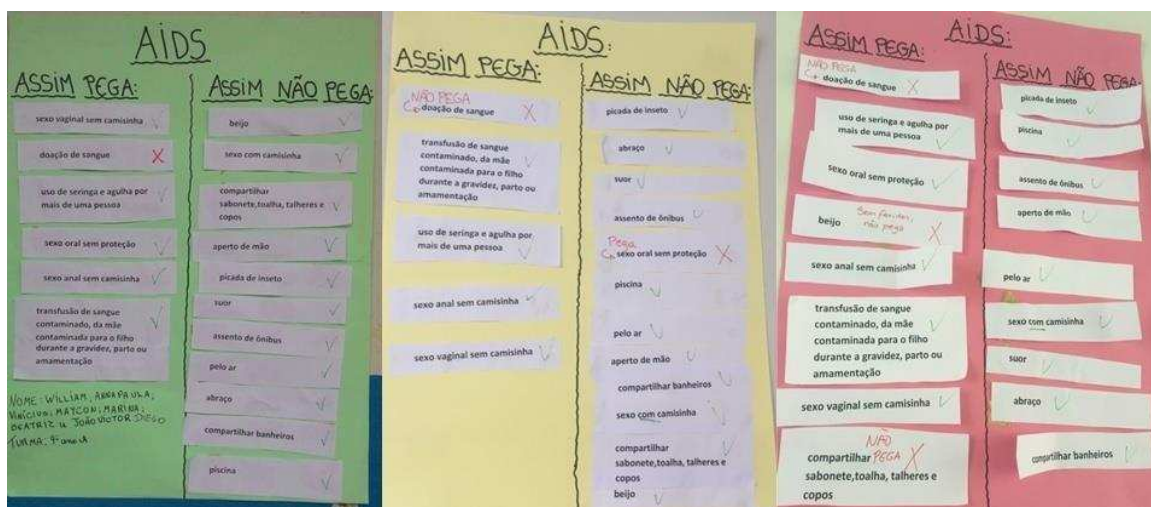 AIDS
ASSIM PEGA:
sexo vaginal sem camisinha
doação de sangue
uso de seringa e agulha por
mais de uma pessoa
sexo oral sem proteção
sexo anal sem camisinha
transfusão de sangue
contaminado, da mãe
contaminada para o filho
durante a gravidez, parto ou
amamentação
NOME: WILLIAM, ANNA PAULA,
VINICIUS, MAYCON, MARINA,
BEATRIZ u JOÃO VICTOR DIEGO
TURMA: 9º ano A
ASSIM NÃO PEGA:
beijo
sexo com camisinha
compartilhar
sabonete,toalha, talheres e
copos
aperto de mão
picada de inseto
suor
assento de ônibus
pelo ar
abraço
compartilhar banheiros
piscina
AIDS:
ASSIM PEGA:
NÃO PEGA
doação de sangue
transfusão de sangue
contaminado, da mãe
contaminada para o filho
durante a gravidez, parto ou
amamentação
uso de seringa e agulha por
mais de uma pessoa
sexo anal sem camisinha
sexo vaginal sem camisinha
ASSIM NÃO PEGA:
picada de inseto
abraço
suor
assento de ônibus
Pega
sexo oral sem proteção
piscina
pelo ar
aperto de mão
compartilhar banheiros
sexo com camisinha
compartilhar
sabonete,toalha, talheres e
copos
beijo
AIDS:
ASSIM PEGA:
NÃO PEGA
doação de sangue
uso de seringa e agulha por
mais de uma pessoa
sexo oral sem proteção
beijo Sem feridas,
não pega
sexo anal sem camisinha
transfusão de sangue
contaminado, da mãe
contaminada para o filho
durante a gravidez, parto ou
amamentação
sexo vaginal sem camisinha
NÃO
compartilhar PEGA
sabonete,toalha, talheres e
copos
ASSIM NÃO PEGA:
picada de inseto
piscina
assento de ônibus
aperto de mão
pelo ar
sexo com camisinha
suor
abraço
compartilhar banheiros